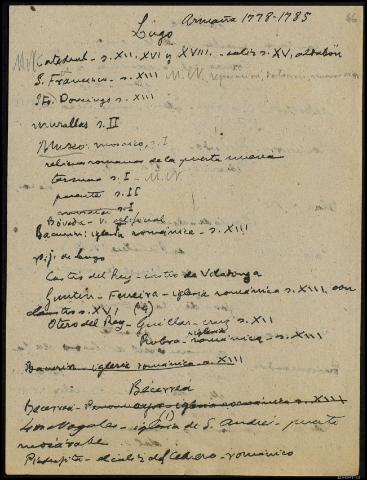 Lugo Armaña 1778-1785
66
Catedral - s. XII, XVI y XVIII. - caliz s. XV, aldabón
S. Francisco - s. XIII M.N.
Sto. Domingo s. XIII
murallas s. II
Museo: mosaico, s. I
relieve romano de la puerta nueva
termas s. I - M.N.
puente s. II
mosaico s. I
Bóveda -
Bacurin: iglesia románica - s. XIII
p.j. de Lugo
Castro del Rey - castro de Viladonga
Guntin - Ferreira - iglesia románica s. XIII, con
claustro s. XVI
Otero del Rey - Guillar - cruz s. XII
Robra - iglesia románica - s. XIII
Bacurin - iglesia románica - s. XIII
Becerrea
Becerrea - iglesia románica s. XIII
Los Nogales - iglesia de S. Andrés - puente
mozárabe (1)
Piedrafita - el caliz del Cebrero - románico